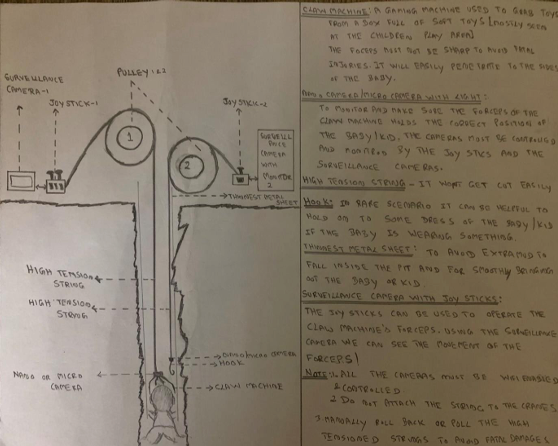 SURVEILLANCE
CAMERA-1
JOYSTICK-1
PULLEY 1&2
JOYSTICK-2
1
2
SURVEILL
ANCE
CAMERA
WITH
MONITOR
2
THINNEST METAL
SHEET
HIGH TENSION
STRING
HIGH TENSION
STRING
NANO/MICRO CAMERA
HOOK
NANO OR MICRO
CAMERA
CLAW MACHINE
CLAW MACHINE: A GAMING MACHINE USED TO GRAB TOYS
FROM A BOX FULL OF SOFT TOYS [MOSTLY SEEN
AT THE CHILDREN PLAY AREA]
THE FOCEPS MUST NOT BE SHARP TO AVOID FATAL
INJURIES. IT WILL EASILY PENETRATE TO THE SIDES
OF THE BABY.
NANO CAMERA/MICRO CAMERA WITH LIGHT:
TO MONITOR AND MAKE SURE THE FORCEPS OF THE
CLAW MACHINE HOLDS THE CORRECT POSITION OF
THE BABY/KID, THE CAMERAS MUST BE CONTROLLED
AND MONITORED BY THE JOY STICKS AND THE
SURVEILLANCE CAMERAS.
HIGH TENSION STRING - IT WONT GET CUT EASILY
HOOK: IN RARE SCENARIO IT CAN BE HELPFUL TO
HOLD ON TO SOME DRESS OF THE BABY/KID
IF THE BABY IS WEARING SOMETHING.
THINNEST METAL SHEET: TO AVOID EXTRA MUD TO
FALL INSIDE THE PIT AND FOR SMOOTHLY BRINGING
OUT THE BABY OR KID
SURVEILLANCE CAMERA WITH JOY STICKS:
THE JOY STICKS CAN BE USED TO OPERATE THE
CLAW MACHINE'S FORCEPS. USING THE SURVEILLANCE
CAMERA WE CAN SEE THE MOVEMENT OF THE
FORCEPS/
NOTE: ALL THE CAMERAS MUST BE
& CONTROLLED
2 DO NOT ATTACH THE STRING TO THE CRANES
3 MANUALLY ROLL BACK OR PULL THE HIGH
TENSIONED STRINGS TO AVOID FATAL DAMAGES